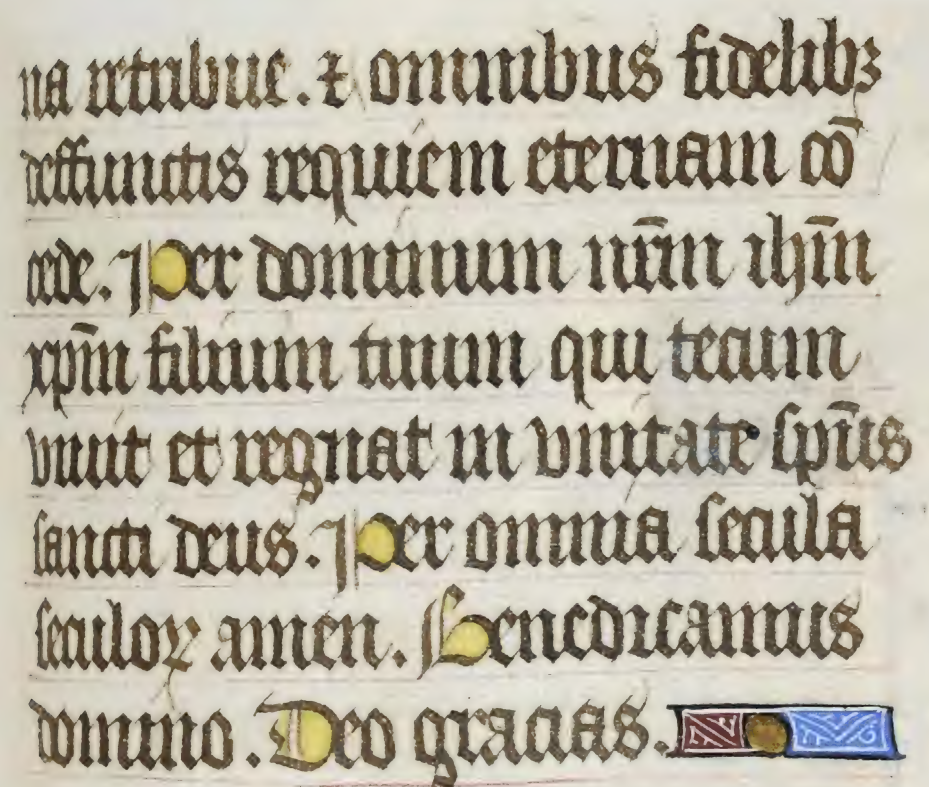 na retribue. ⁊ omnibus fidelibꝫ
deffunctis requiem eternam cō
cede. Per dominum nr̄m ihm̄
xpm̄ filium tuum qui tecum
viuit et regnat in vnitate sp̄us
sancti deus. Per omnia secula
seculoꝝ amen. Benedicamus
domino. Deo gracias.